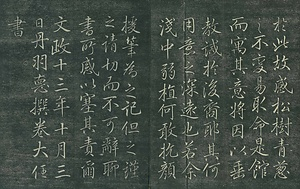 於此故感松樹
之不變易取命是館
而寓其意將因以垂
教誡於後裔耶其何
用意之深遠也若余
淺中弱植何敢抗顔
援筆為之記但之謹
之請切而不可辭聊
書所感以塞其責爾
文政十三年十月三
日丹羽撰秦大任
書